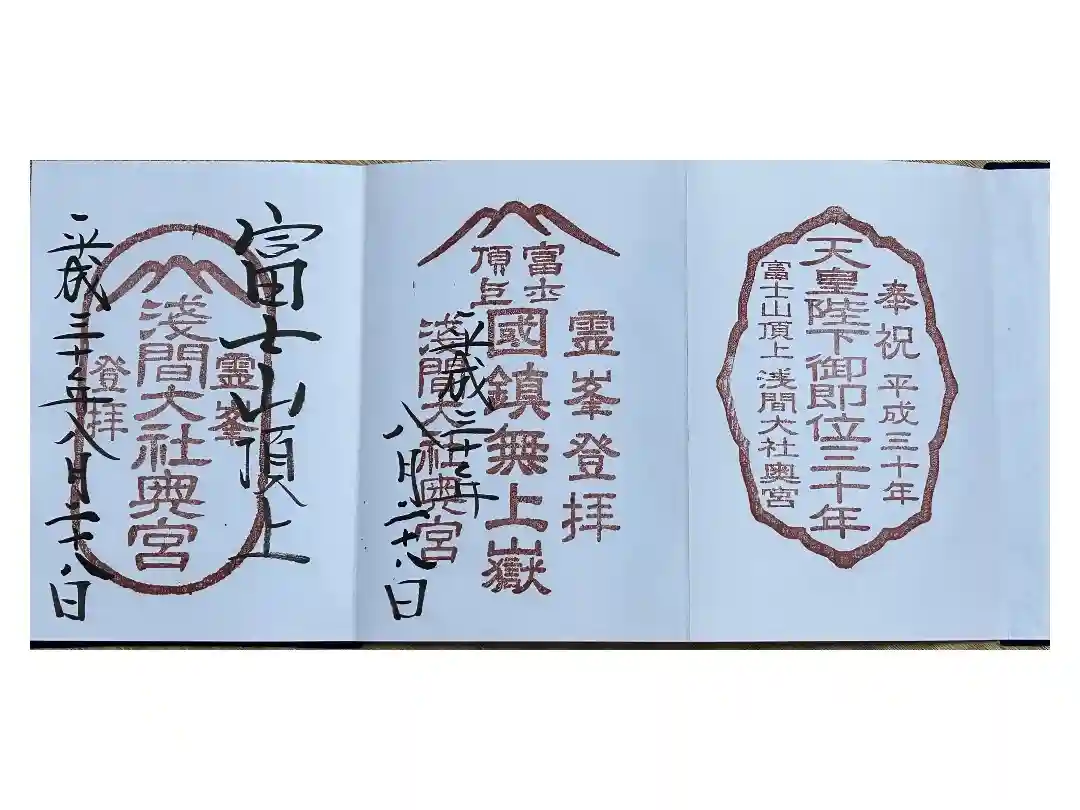 奉祝 平成三十年
天皇陛下御即位三十年
富士山頂上 淺間大社奥宮
霊峯登拝
富士
頂上
國鎮無上嶽
淺間大社奥宮
平成三十年
八月二十八日
富士山頂上
霊峯
淺間大社奥宮
登拝
平成三十年八月二十八日